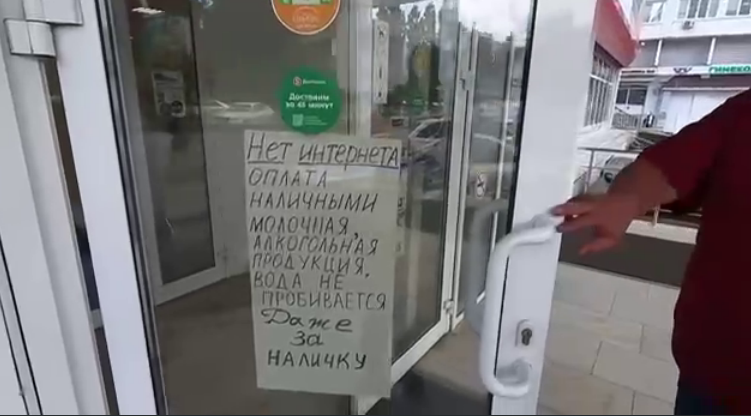 Доставим
за 45 минут
Нет интернета
ОПЛАТА
НАЛИЧНЫМИ
МОЛОЧНАЯ,
АЛКОГОЛЬНАЯ
ПРОДУКЦИЯ,
ВОДА НЕ
ПРОБИВАЕТСЯ
Даже
за
НАЛИЧКУ
ГИНЕКО